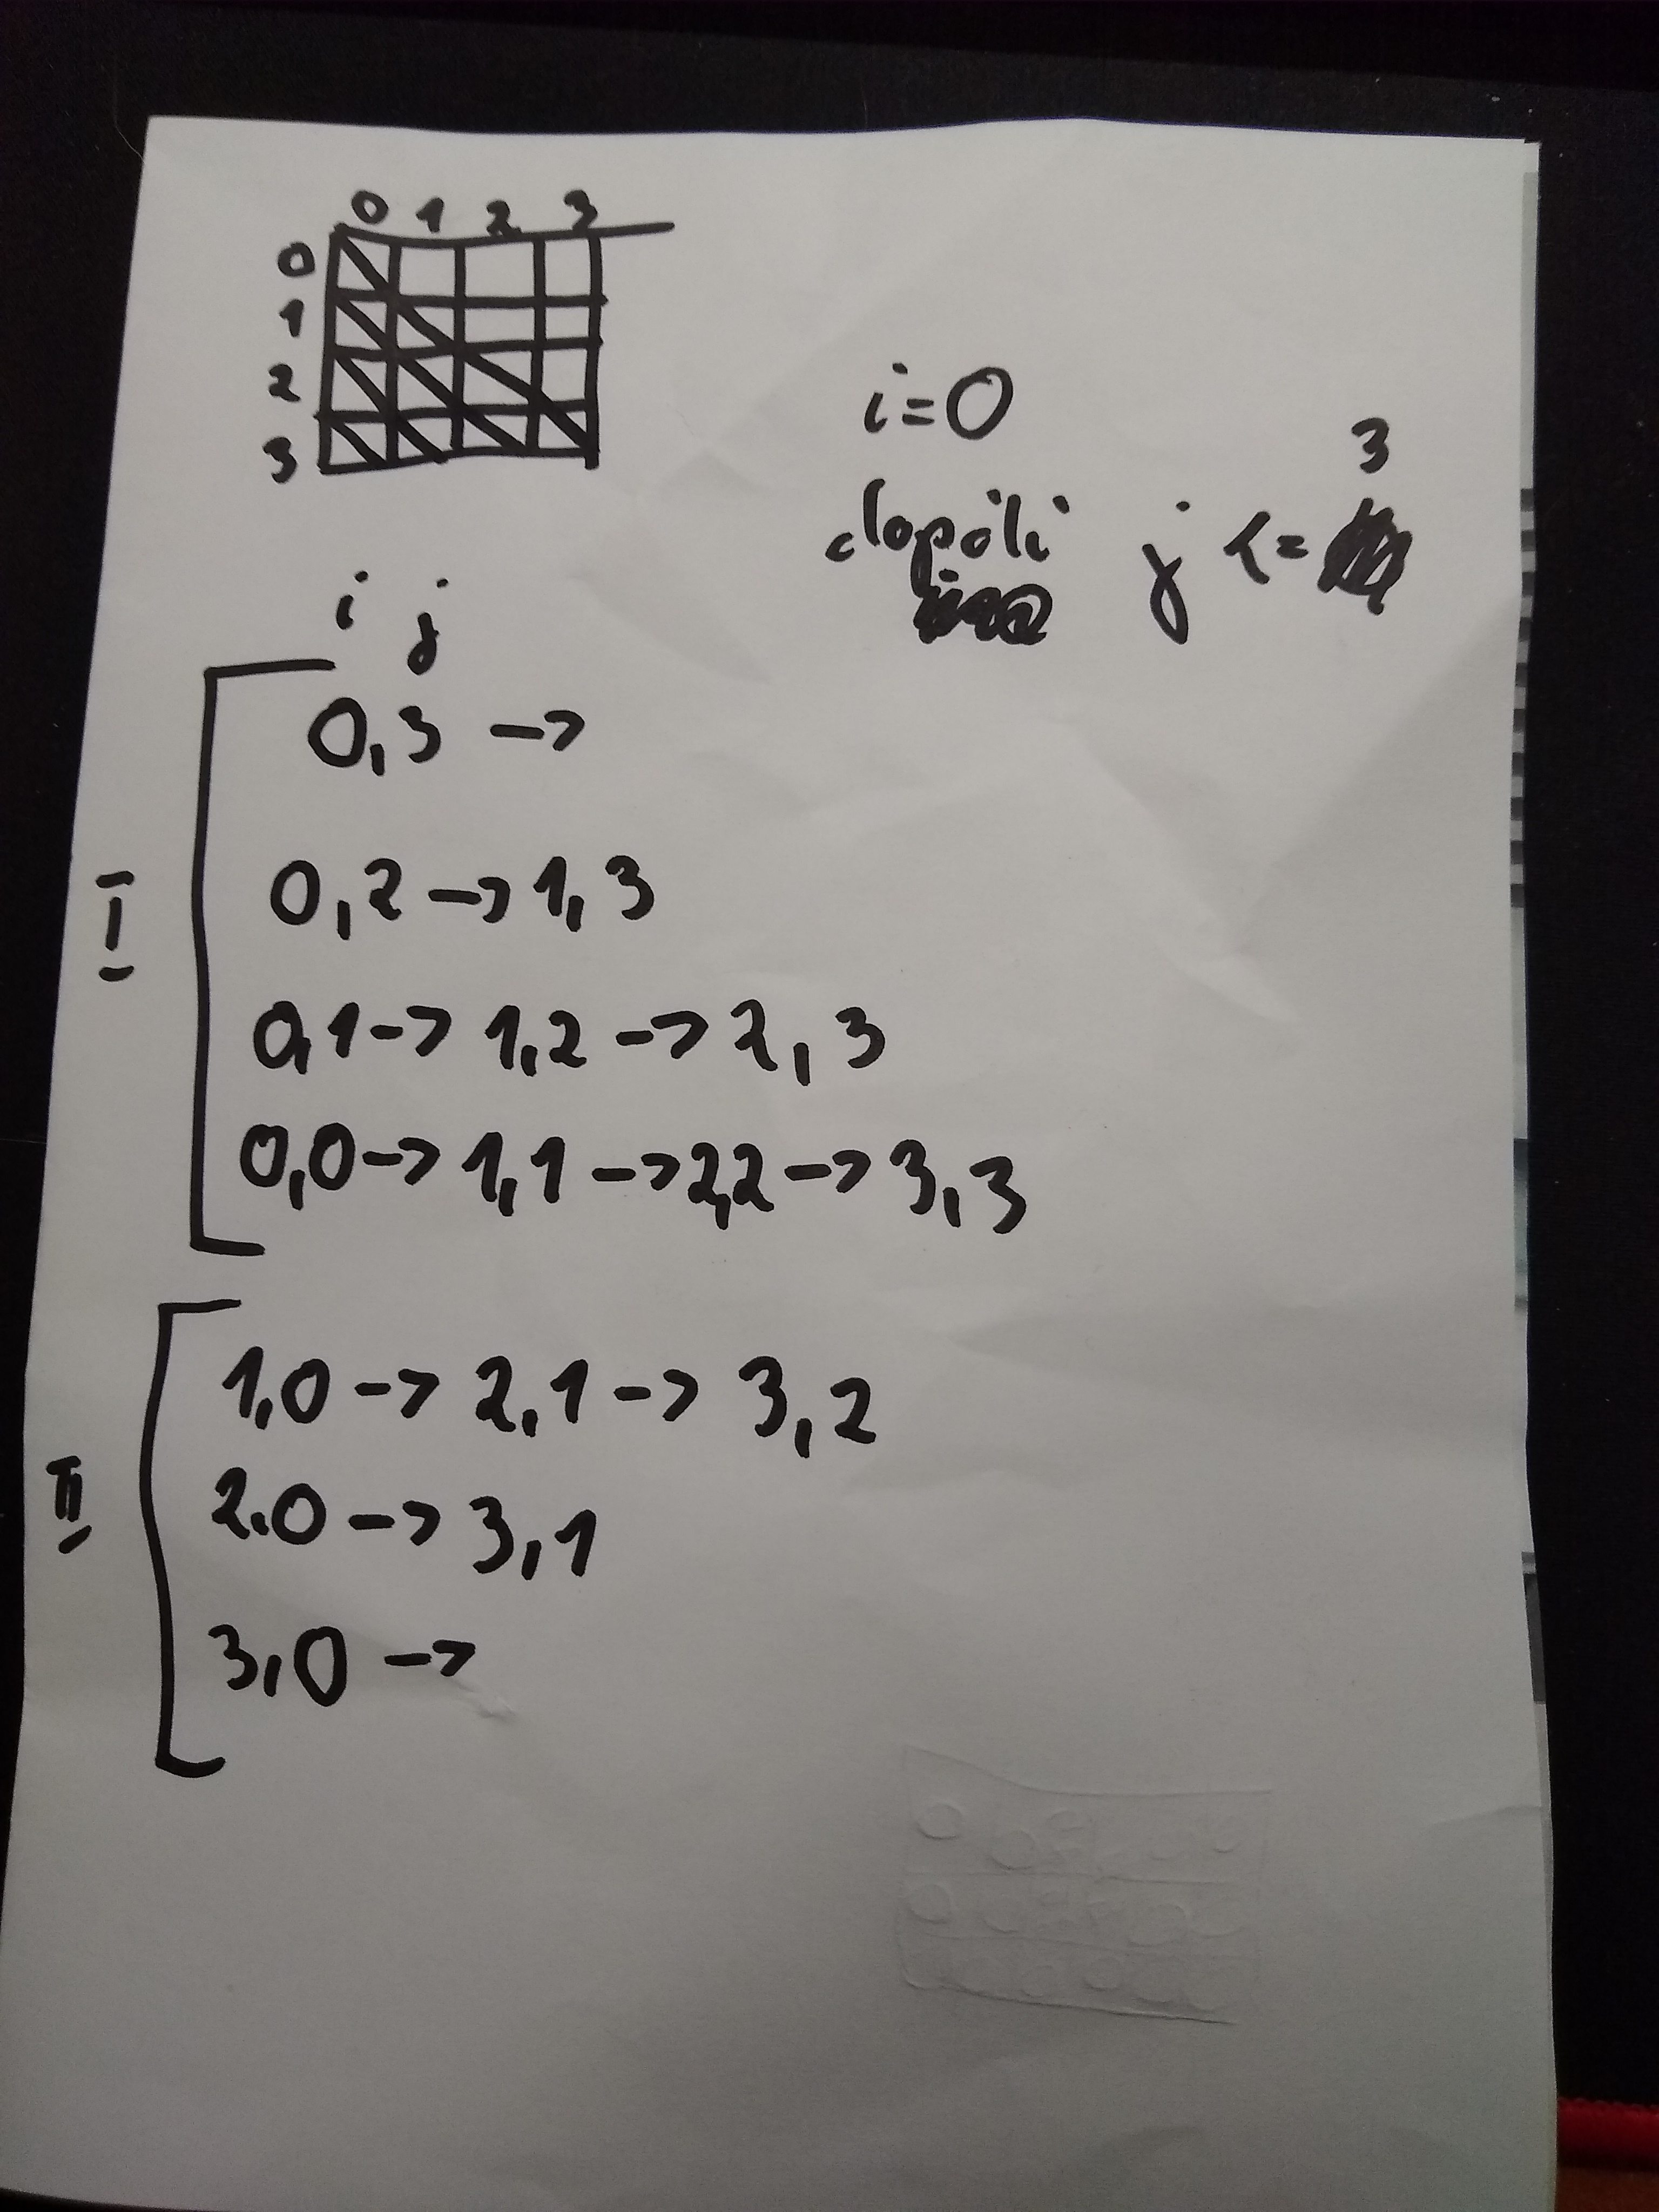 0 1 2 3
0
1
2
3
i=0
dopóki j <= 3
i j
I
0,3 ->
0,2 -> 1,3
0,1 -> 1,2 -> 2,3
0,0 -> 1,1 -> 2,2 -> 3,3
II
1,0 -> 2,1 -> 3,2
2.0 -> 3,1
3,0 ->